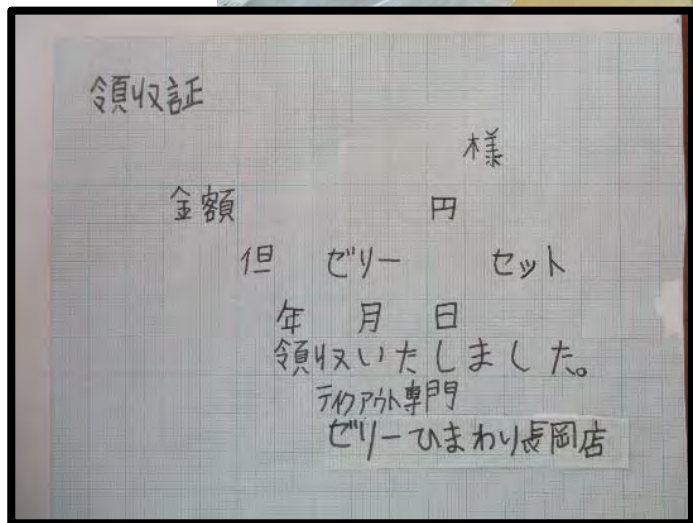 領収証
様
金額　　　円
但　ゼリー　　セット
年　月　日
領収いたしました。
テイクアウト専門
ゼリーひまわり長岡店